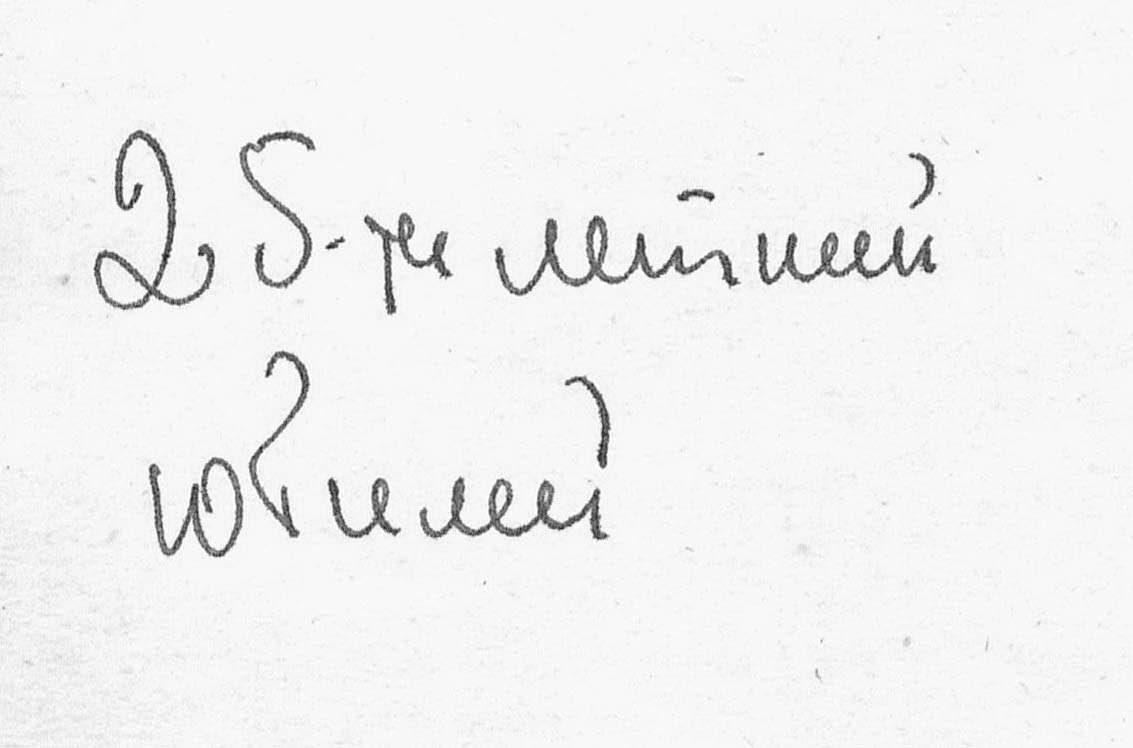 25-ти летний
юбилей